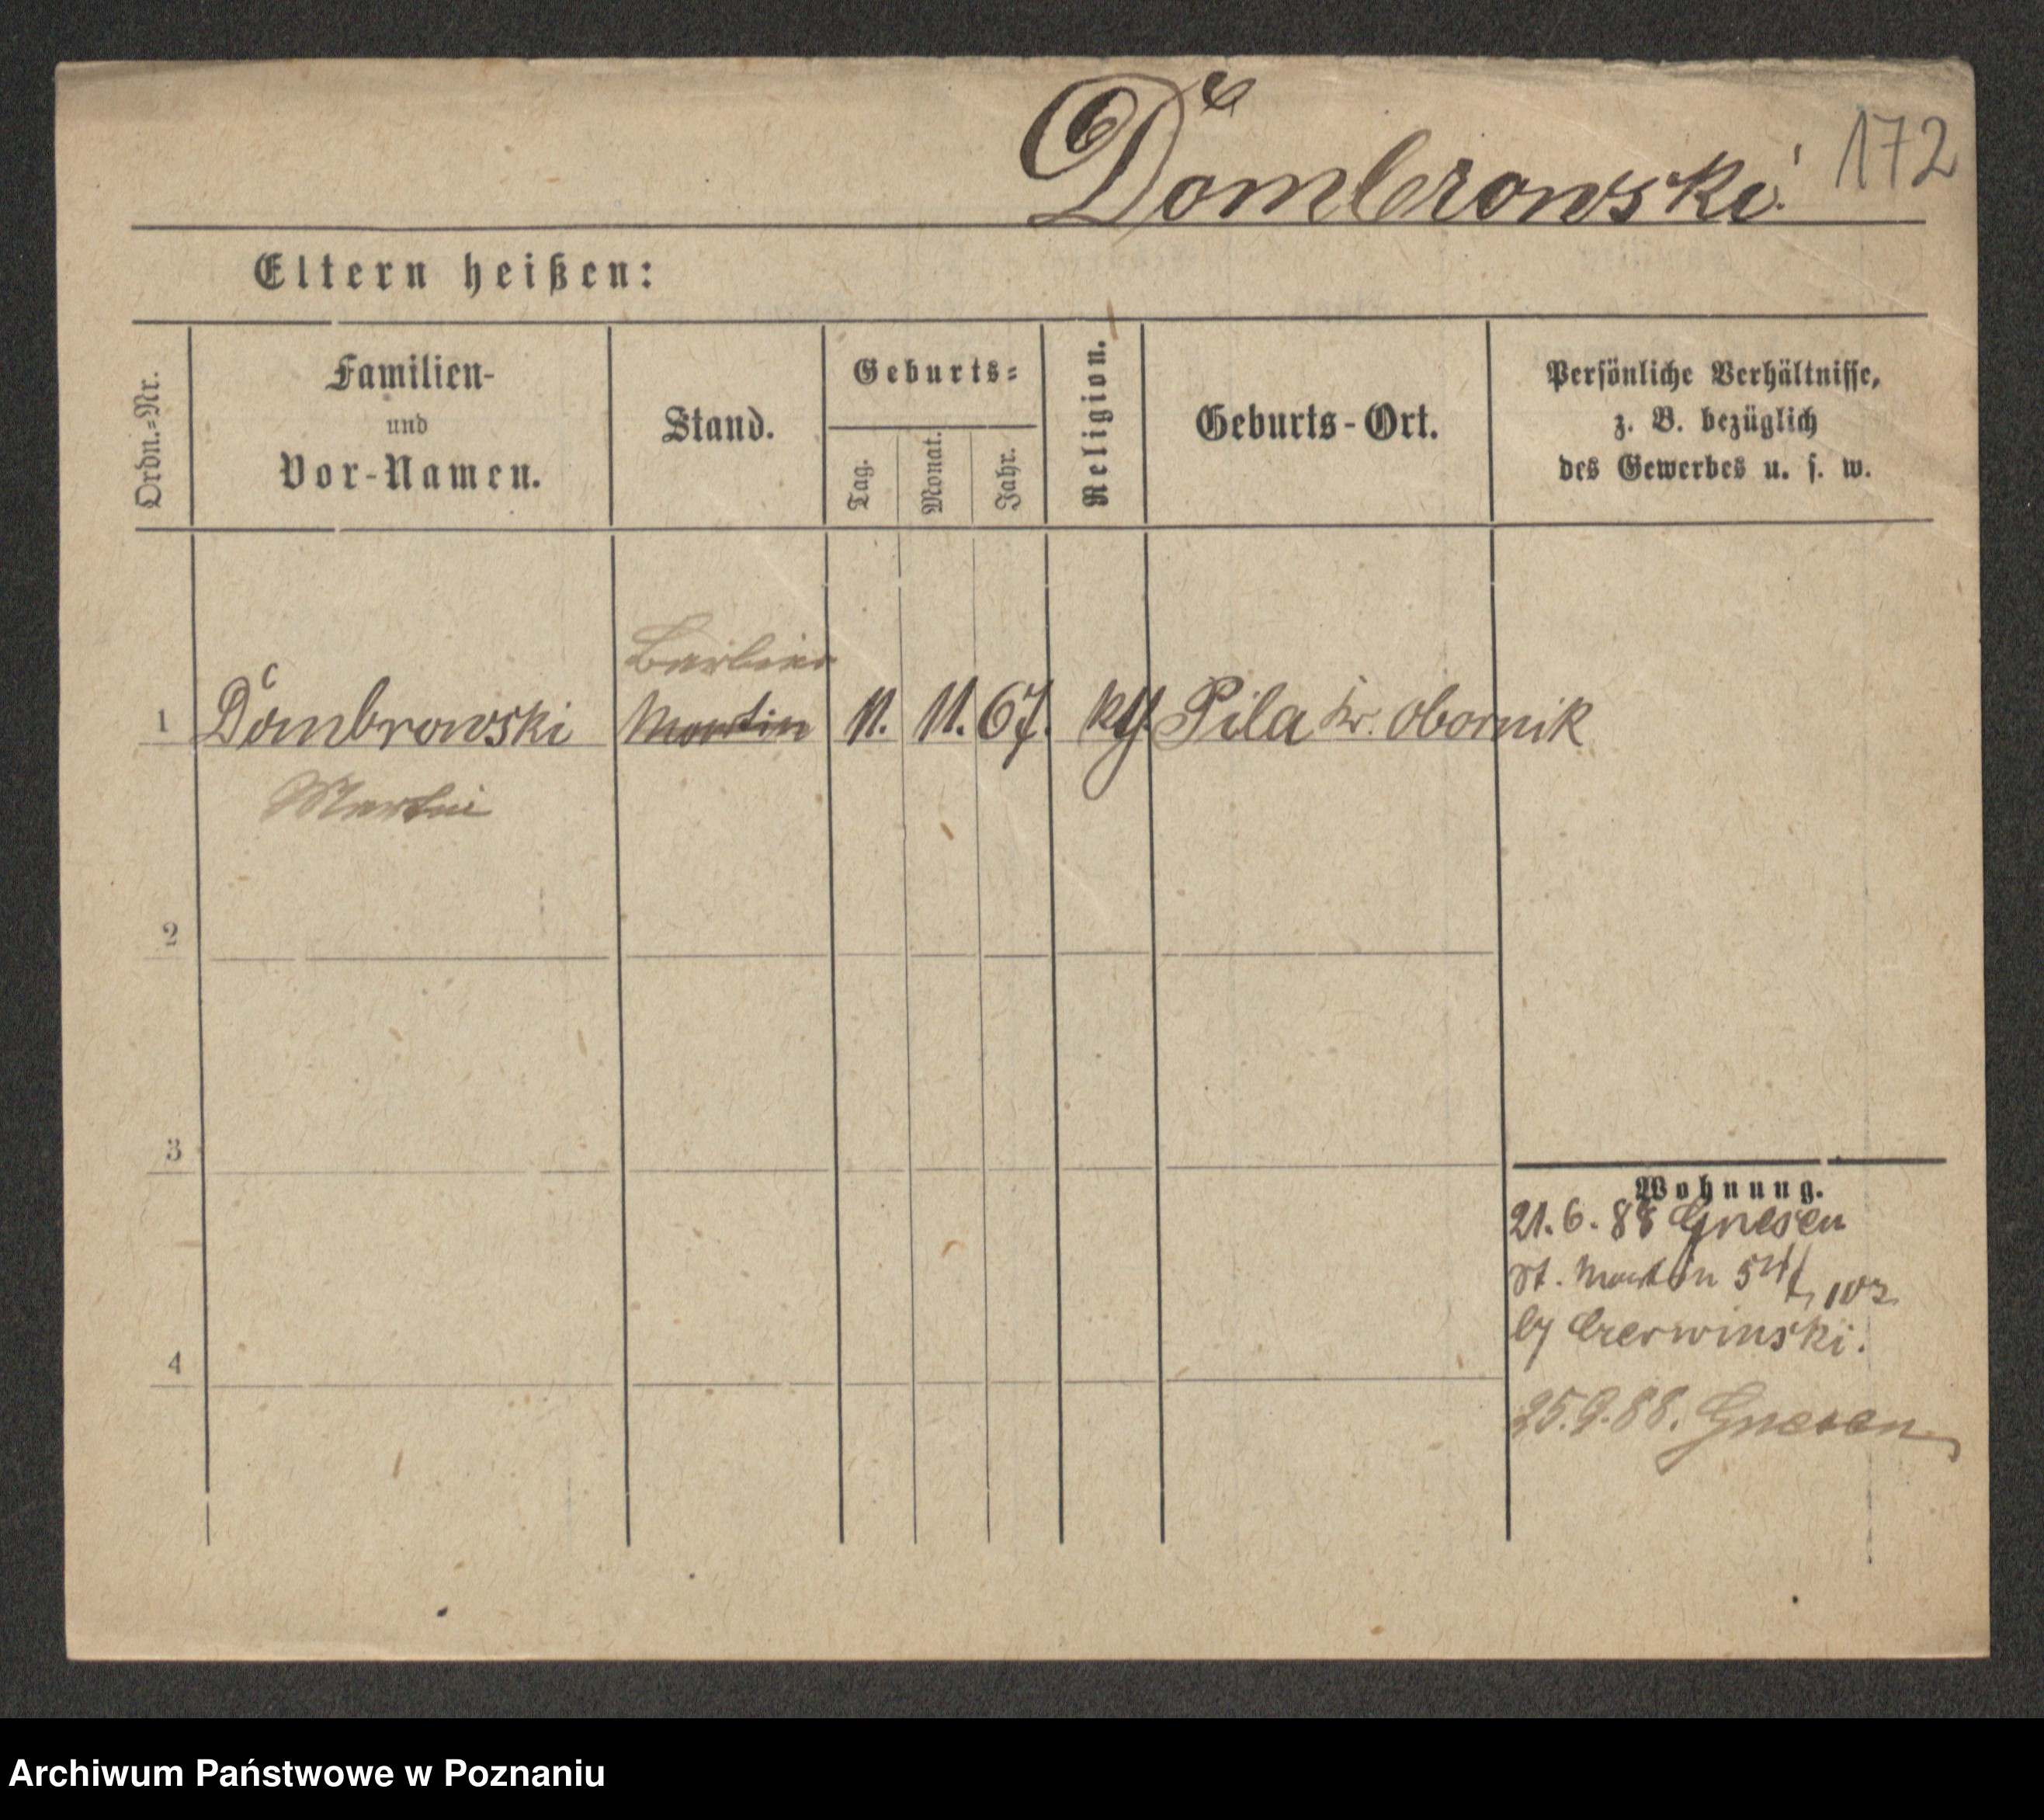 Dombrowski
172
Eltern heißen:
Ordn.=Nr.
Familien-
und
Vor-Namen.
Stand.
Geburts=
Tag.
Monat.
Jahr.
Religion.
Geburts-Ort.
Persönliche Verhältnisse,
z. B. bezüglich
des Gewerbes u. s. w.
Barbier
1 Dombrowski Martin 11. 11. 67. Pila Kr. Obornik
Martin
2
3
4
Wohnung.
21. 6. 88 Gnesen
St. Martin
Czerwinski.
25. 9. 88. Gnesen
Archiwum Państwowe w Poznaniu